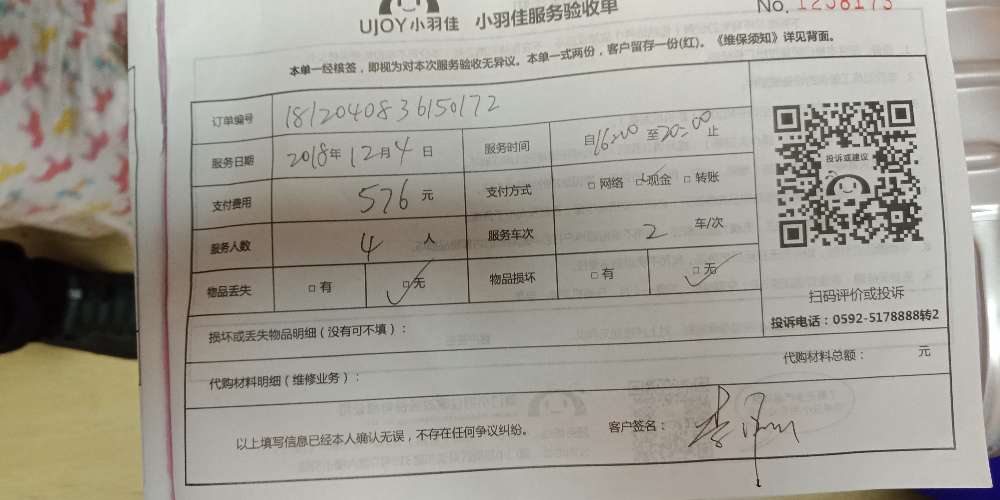 UJOY小羽佳 小羽佳服务验收单
No. 1258173
本单一经核签，即视为对本次服务验收无异议。本单一式两份，客户留存一份(红)。《维保须知》详见背面。
订单编号 1812040836150172
服务日期 2018年12月4日 服务时间 自16:00至20:00止
支付费用 576元 支付方式 □网络 □现金 □转账
服务人数 4人 服务车次 2车/次
物品丢失 □有 □无 物品损坏 □有 □无
投诉或建议
扫码评价或投诉
投诉电话：0592-5178888转2
损坏或丢失物品明细（没有可不填）：
代购材料明细（维修业务）： 代购材料总额： 元
以上填写信息已经本人确认无误，不存在任何争议纠纷。 客户签名：